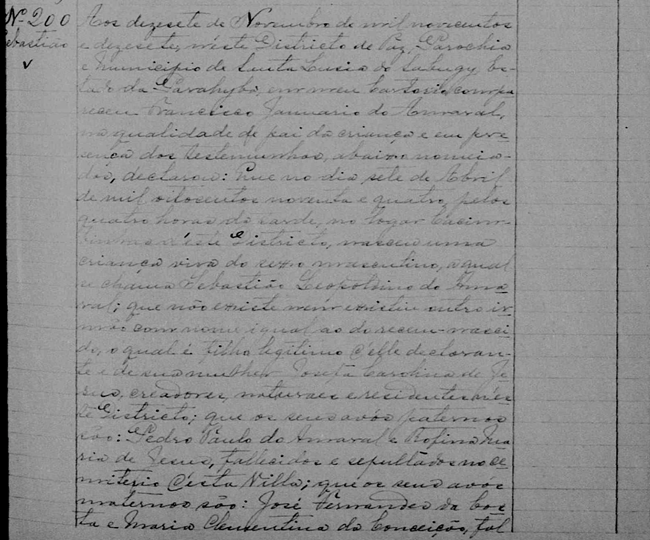 Nº 200
Sebastião
Aos dezesete de Novembro de mil novecentos
e dezesete, n'este Districto de Paz, Parochia
e Municipio de Santa Lusia do Sabugy, Es-
tado da Parahyba, em meu Cartorio compa
receu Francisco Januario do Amaral,
na qualidade de pai da criança e em pre-
sença das testemunhas, abaixo nomeia-
das, declarou: Que no dia sete de Abril
de mil oitocentos noventa e quatro, pelas
quatro horas da tarde, no logar
n'este Districto, nasceu uma
criança viva do sexo masculino, a qual
se chama Sebastião Leopoldino do Ama
ral; que não existe nem existiu outro ir-
mão com nome igual ao do recem-nasci
do, o qual é filho legitimo d'elle declaran-
te e de sua mulher Josefa Carolina de Je
sus, creadores, naturaes e residentes n'es-
te Districto; que os seus avós paternos
são: Pedro Paulo do Amaral e Rofina Ma
ria de Jesus, fallecidos e sepultados no ce
miterio d'esta Villa; que os seus avós
maternos são: José Fernandes da Cos-
ta e Maria Clementina da Conceição, fal